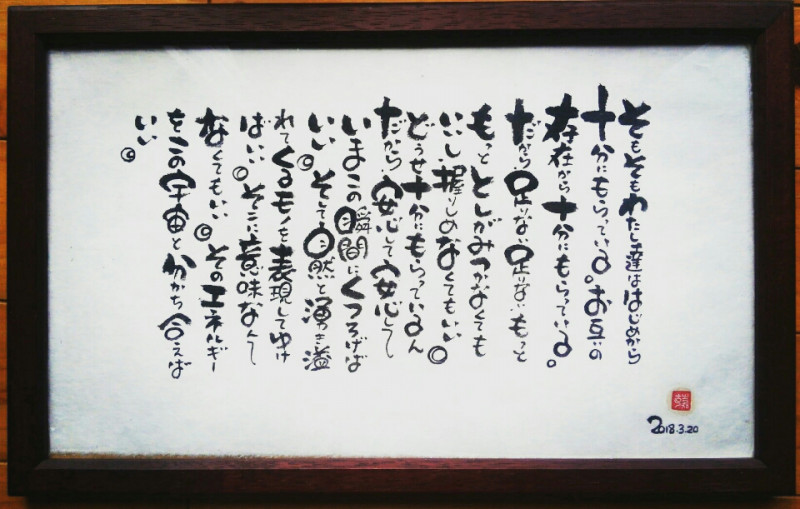 そもそもわたし達ははじめから
十分にもらっている。お互いの
存在から十分にもらっている。
だから足りない足りないもっと
もっととしがみつかなくても
いいし握りしめなくてもいい。
どうせ十分にもらっているん
だから安心して安心して
いまこの瞬間にくつろげば
いい。そして自然と湧き溢
れてくるモノを表現してゆけ
ばいい。そこに意味なんて
なくてもいい。そのエネルギー
をこの宇宙と分かち合えば
いい。
2018.3.20